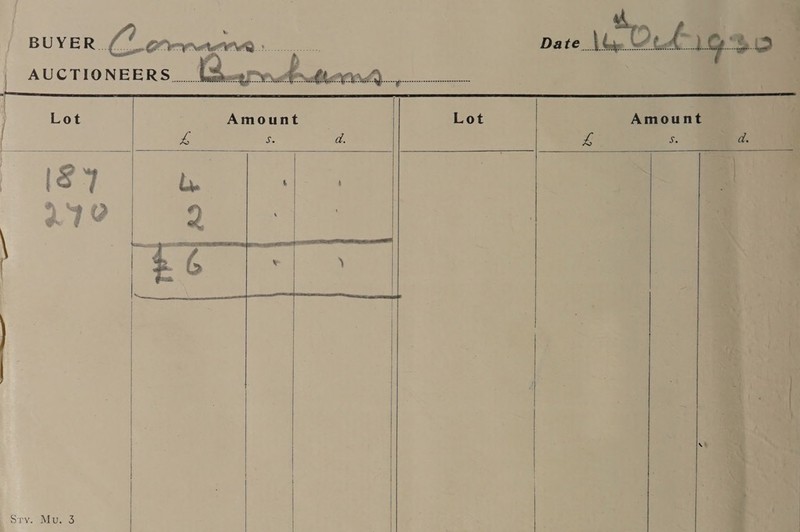 BUYER Comins. Date 14th Oct 1930
AUCTIONEERS Bonhams,
Lot Amount Lot Amount
£ s. d. £ s. d.
187 4 " "
270 2 " "
£ 6 " "
Sty. Mu. 3